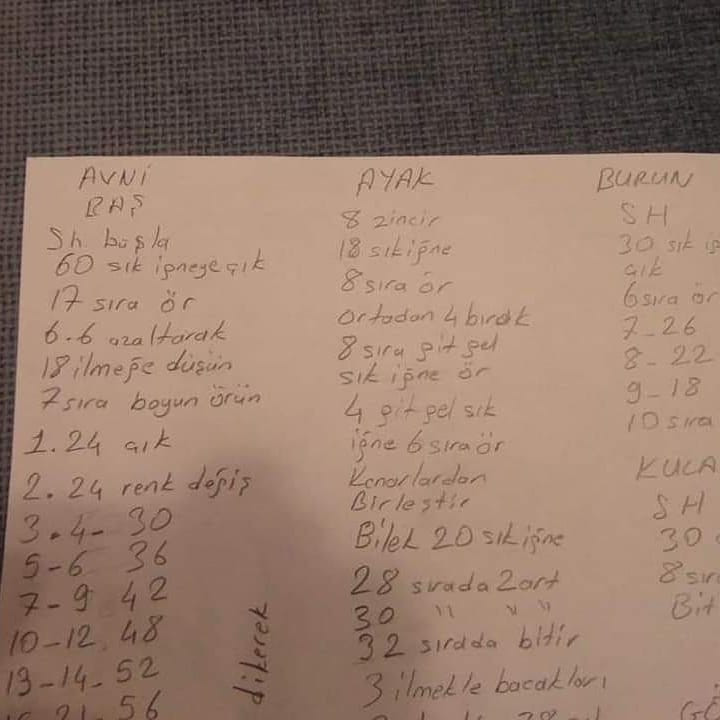 AVNİ
BAŞ
Sh. başla
60 sık iğneye çık
17 sıra ör
6-6 azaltarak
18 ilmeğe düşün
7 sıra boyun örün
1. 24 çık
2. 24 renk değiş
3-4- 30
5-6 36
7-9 42
10-12 48
13-14- 52
21- 56
dikerek
AYAK
8 zincir
18 sık iğne
8 sıra ör
ortadan 4 bırak
8 sıra git gel
sık iğne ör
4 git gel sık
iğne 6 sıra ör
Kenarlardan
Birleştir
Bilek 20 sık iğne
28 sırada 2 art
30 " " "
32 sırada bitir
3 ilmekle bacakları
BURUN
SH
30 sık iğ
çık
6 sıra ör
7-26
8-22
9-18
10 sıra
KULA
SH
30
8 sır
Bit